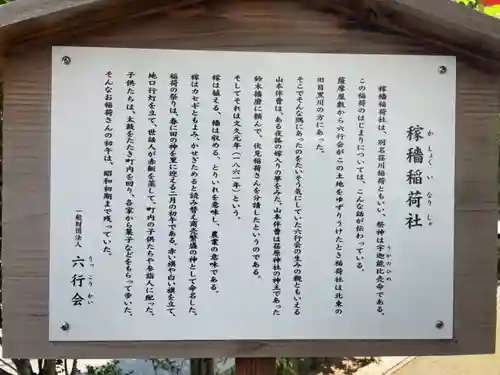 稼穡稲荷社
かしょくいなりしゃ
稼穡稲荷社は、別名荏川稲荷ともいい、祭神は宇迦能比売命である。
うかのひめ
この稲荷のはじまりについては、こんな話が伝わっている。
薩摩屋敷から六行会がこの土地をゆずりうけたとき稲荷社は北東の
旧目黒川の方にあった。
そこでそんな隅にあったのをたいそう気にしていた六行会の生みの親ともいえる
山本伴曹は、ある夜狐の嫁入りの夢をみた。山本伴曹は荏原神社の神主であった
鈴木播磨に頼んで、伏見稲荷さんを分譲したというのである。
そしてそれは文久元年(一八六一年)という。
稼は植える、穡は収める、とりいれを意味し、農業の意味である。
稼はカセギともよみ、かせぎためると読み替え商売繁盛の神として命名した。
稲荷の祭りは、春に田の神を里に迎える二月の初午である。赤い旗や白い旗を立て、
地口行灯を立て、世話人が赤飯を蒸して、町内の子供たちや参詣人に配った。
子供たちは、太鼓をたたき町内を回り、各家から菓子などをもらって歩いた。
そんなお稲荷さんの初午は、昭和初期まで残っていた。
一般財団法人 六行会
りっこうかい